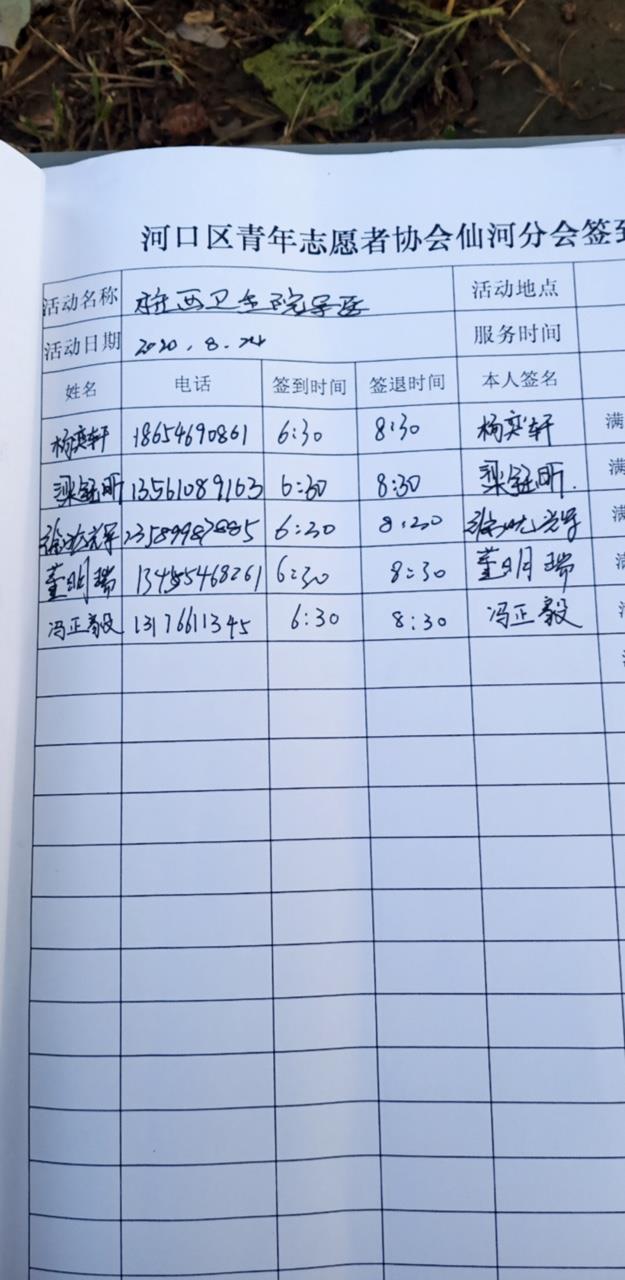 河口区青年志愿者协会仙河分会签到
活动名称 卫生院导医 活动地点
活动日期 2020.8.24 服务时间
姓名 电话 签到时间 签退时间 本人签名
杨奕轩 18654690861 6:30 8:30 杨奕轩 满
梁钰昕 13561089163 6:30 8:30 梁钰昕. 满
6:30 8:30 满
董明瑞 6:30 8:30 董明瑞 满
冯正毅 13176611345 6:30 8:30 冯正毅